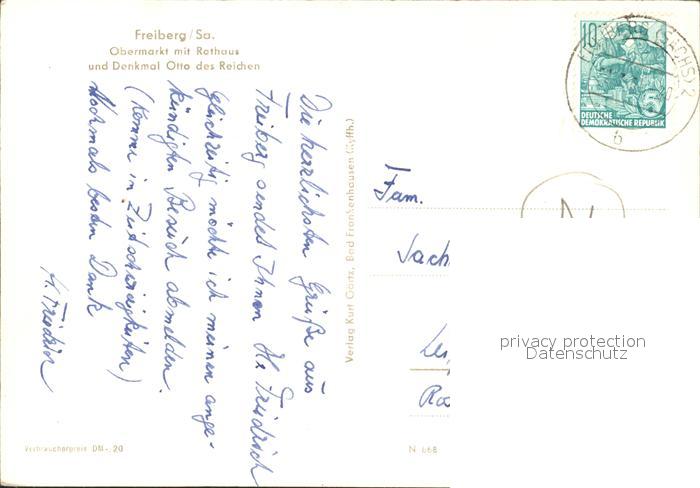 Freiberg/Sa.
Obermarkt mit Rathaus
und Denkmal Otto des Reichen
Die herzlichsten Grüße aus
Freiberg sendet Ihnen H. Friedrich
Gleichzeitig möchte ich meinen ange-
kündigten Besuch abmelden.
(Komme in Zeitschwierigkeiten)
Nochmals besten Dank
H. Friedrich
Verbraucherpreis DM -,20
Verlag Kurt Görtz, Bad Frankenhausen (Kyffh.)
N 668
10
5
DEUTSCHE
DEMOKRATISCHE REPUBLIK
FREIBERG (SACHS) 2
b
N
Fam.
Sach
privacy protection
Datenschutz